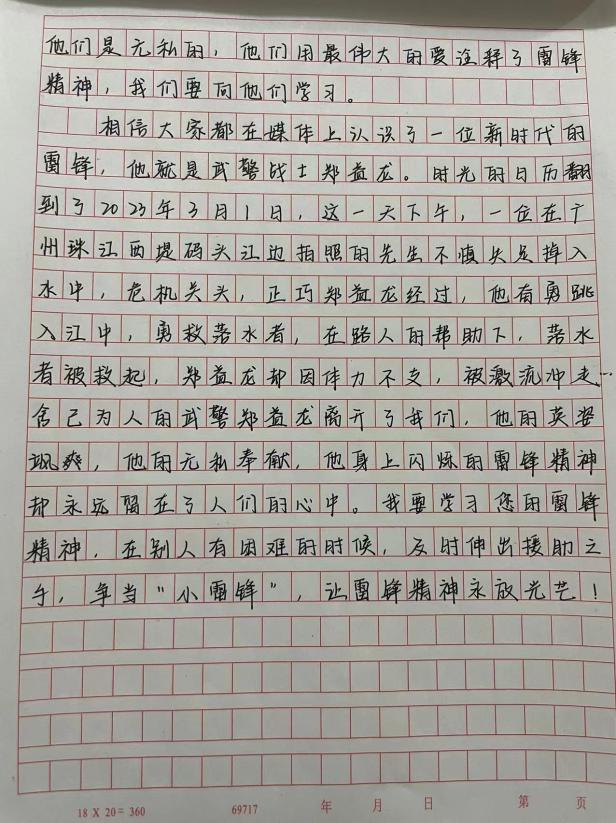 他们是无私的，他们用最伟大的爱诠释了雷锋
精神，我们要向他们学习。
相信大家都在媒体上认识了一位新时代的
雷锋，他就是武警战士郑益龙。时光的日历翻
到了2023年3月1日，这一天下午，一位在广
州珠江西堤码头江边拍照的先生不慎失足掉入
水中，危机关头，正巧郑益龙经过，他有勇跳
入江中，勇救落水者，在路人的帮助下，落水
者被救起，郑益龙却因体力不支，被激流冲走…
舍己为人的武警郑益龙离开了我们，他的英姿
飒爽，他的无私奉献，他身上闪烁的雷锋精神
却永远留在了人们的心中。我要学习您的雷锋
精神，在别人有困难的时候，及时伸出援助之
手，争当“小雷锋”，让雷锋精神永放光芒！
18 X 20 = 360 69717 年 月 日 第 页